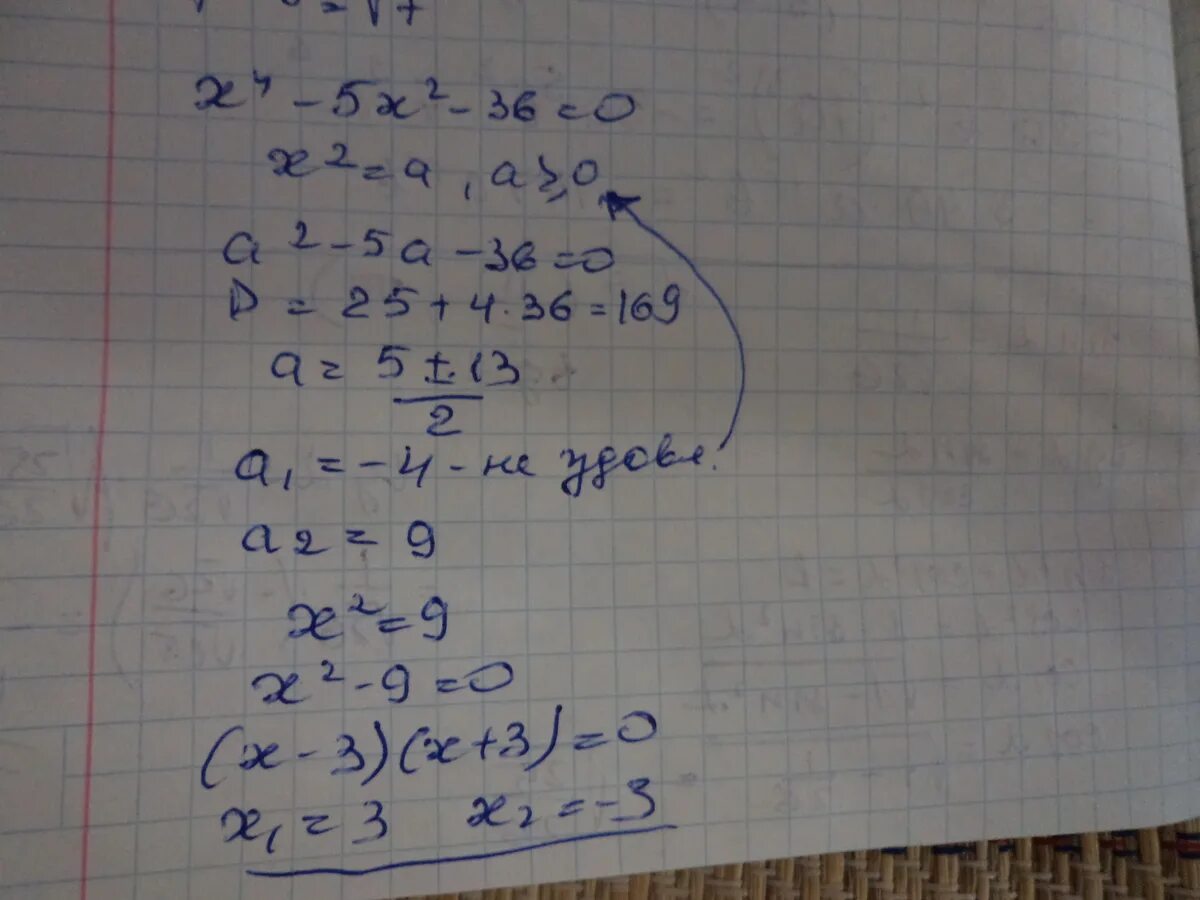 = √7
x⁴ - 5x² - 36 = 0
x² = a, a ≥ 0
a² - 5a - 36 = 0
D = 25 + 4·36 = 169
a = (5 ± 13)/2
a₁ = -4 - не удовл.
a₂ = 9
x² = 9
x² - 9 = 0
(x - 3)(x + 3) = 0
x₁ = 3 x₂ = -3